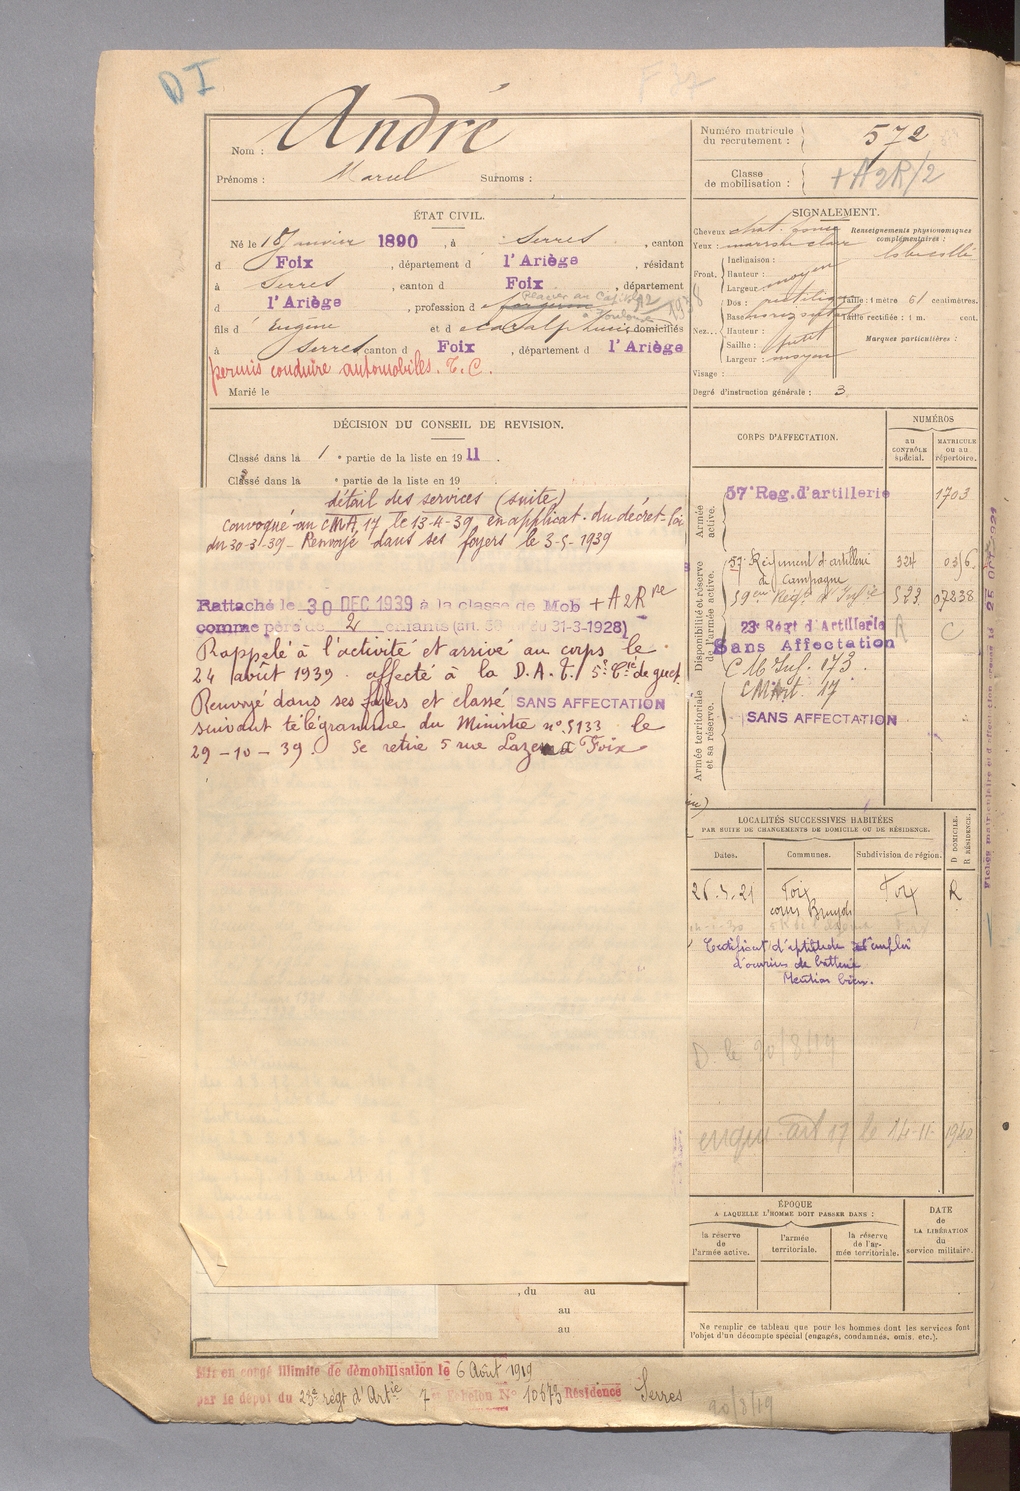 D I
André
Nom :
Prénoms : Marcel Surnoms :
Numéro matricule
du recrutement : 572
Classe
de mobilisation : + A 2R/2
ÉTAT CIVIL.
Né le 18 Janvier 1890, à Serres, canton
d Foix, département d l'Ariège, résidant
à Serres, canton d Foix, département
d l'Ariège, profession d
à Toulouse 1938
fils d' Eugène et d domiciliés
à Serres canton d Foix, département d l'Ariège
permis conduire automobiles. T. C.
Marié le
SIGNALEMENT.
Cheveux chat. foncé
Yeux : marron clair
Renseignements physionomiques
complémentaires :
Front. Inclinaison :
Hauteur : moyen
Largeur
Nez... Dos : rectiligne
Base horizontal
Hauteur :
Saillie : petit
Largeur : moyen
Visage :
Taille : 1 mètre 61 centimètres.
Taille rectifiée : 1 m. cent.
Marques particulières :
Degré d'instruction générale : 3
DÉCISION DU CONSEIL DE REVISION.
Classé dans la 1 e partie de la liste en 1911.
Classé dans la e partie de la liste en 19
détail des services (suite)
convoqué au CMA 17 le 13-4-39 en applicat. du décret-loi
du 30-3-39 - Renvoyé dans ses foyers le 3-5-1939
Rattaché le 30 DEC 1939 à la classe de Mob + A2R
comme père de 2 enfants (art. du 31-3-1928)
Rappelé à l'activité et arrivé au corps le
24 août 1939. affecté à la D.A.T. 5e Cie de guet.
Renvoyé dans ses foyers et classé SANS AFFECTATION
suivant télégramme du Ministre n° 5133 le
29-10-39. Se retire 5 rue Lazema Foix
CORPS D'AFFECTATION.
NUMÉROS
au
CONTRÔLE
spécial.
MATRICULE
ou au
répertoire.
Armée
active.
57e Reg. d'artillerie 1703
Disponibilité et réserve
de l'armée active.
57e Régiment d'artillerie 324
de Campagne
59eme Régt d'Infie 523 07238
23e Régt d'Artillerie R C
Sans Affectation
C M Inf. 173.
Armée territoriale
et sa réserve.
CM Art. 17
SANS AFFECTATION
LOCALITÉS SUCCESSIVES HABITÉES
PAR SUITE DE CHANGEMENTS DE DOMICILE OU DE RÉSIDENCE.
Dates. Communes. Subdivision de région. D DOMICILE. R RÉSIDENCE.
Foix Foix R
cours
Certificat d'aptitude à l'emploi
d'ouvrier de batterie
Mention bien.
D. le 20/8/19
art 17 le 14-11-1940
ÉPOQUE
A LAQUELLE L'HOMME DOIT PASSER DANS :
la réserve
de
l'armée active.
l'armée
territoriale.
la réserve
de l'ar-
mée territoriale.
DATE
de
LA LIBÉRATION
du
service militaire.
, du au
au
au
Ne remplir ce tableau que pour les hommes dont les services font
l'objet d'un décompte spécial (engagés, condamnés, omis, etc.).
Mis en congé illimité de démobilisation le 6 Août 1919
par le dépôt du 23e régt d'Artie 7e Echelon N° 10673 Résidence Serres
20/8/19